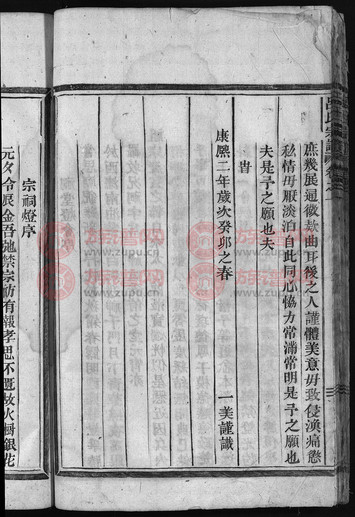 呂氏宗譜
庶幾展逼微欵曲耳後之人謹體美意毋致侵漁痛懲
私情毋厭淡泊自此同心恊力常滿常明是予之願也
夫是予之願也夫
旹
康熙二年歲次癸卯之春　一美謹識
宗祠燈序
元夕令辰金吾弛禁宗祊有報孝思不匱故火樹銀花
族譜网
www.zupu.cn